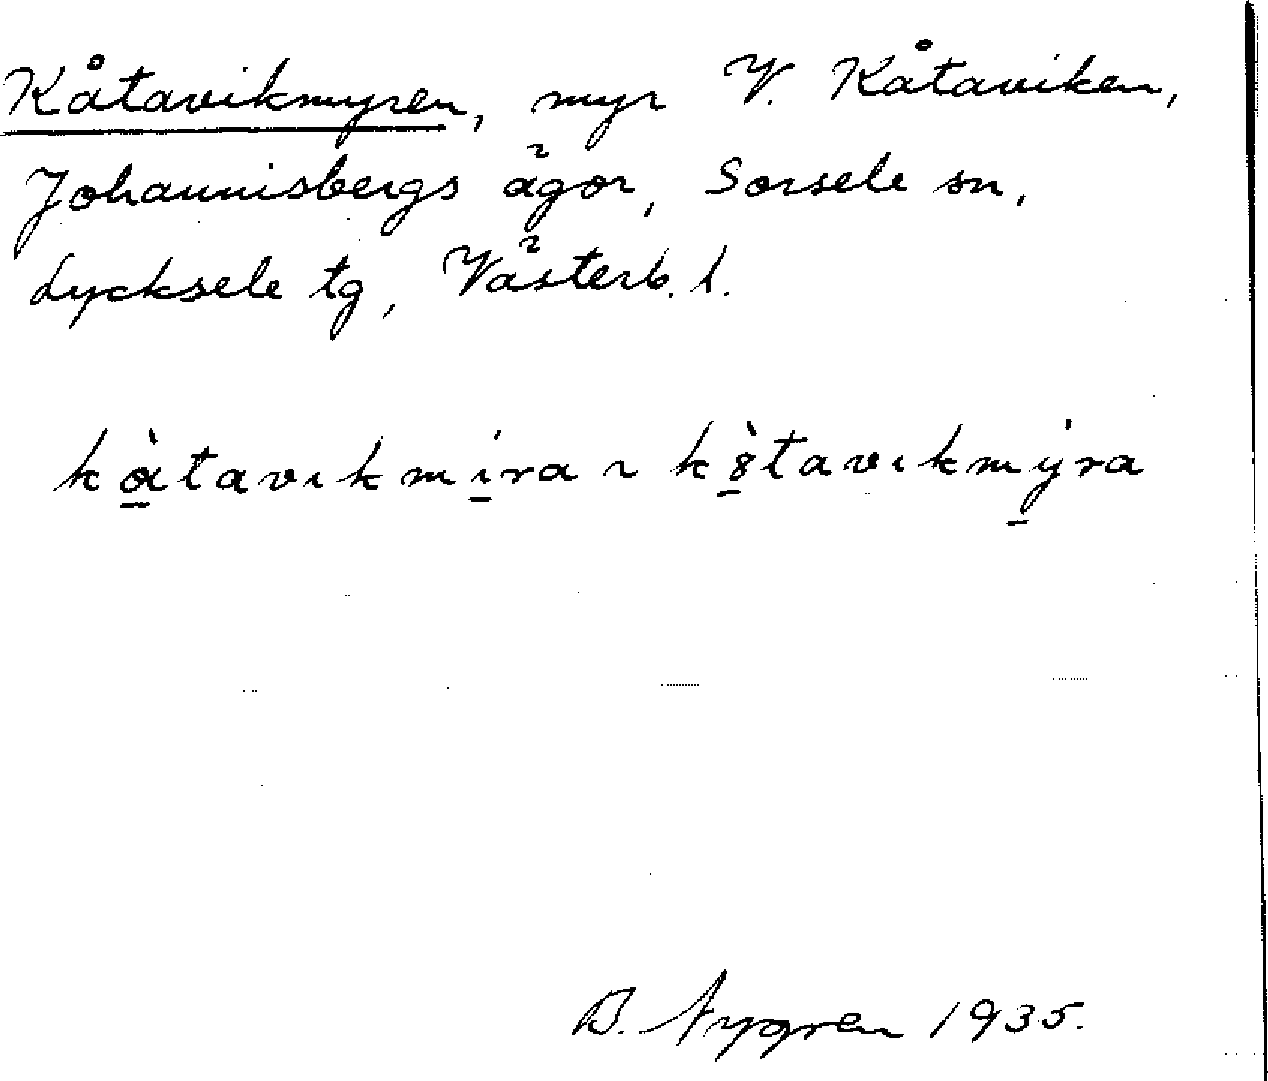 Kåtavikmyren, myr V. Kåtaviken,
Johannisbergs ägor, Sorsele sn,
Lycksele tg, Västerb. l.
kå̀tavıkmı́ra ~ kò̤tavıkmýra
B. Nygren 1935.